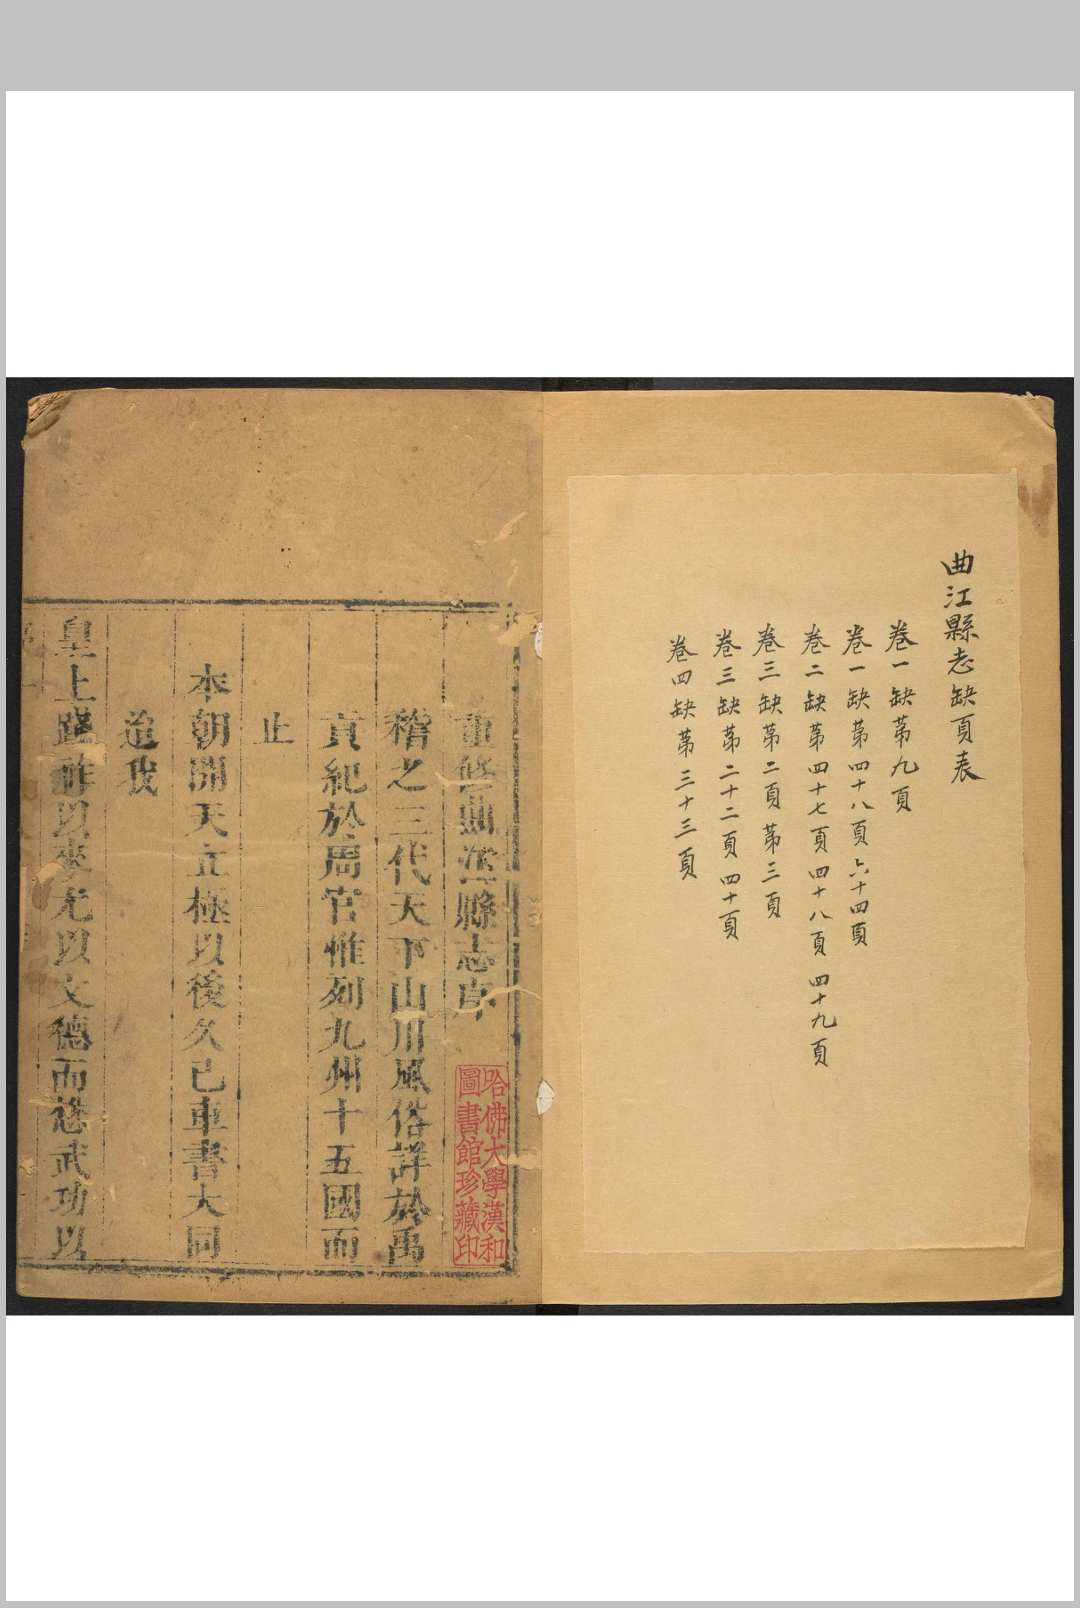 曲江縣志缺頁表
卷一缺第九頁
卷一缺第四十八頁 六十四頁
卷二缺第四十七頁 四十八頁 四十九頁
卷三缺第二頁 第三頁
卷三缺第二十二頁 四十頁
卷四缺第三十三頁
重修曲江縣志序
哈佛大學漢和
圖書館珍藏印
稽之三代天下山川風俗詳於禹
貢紀於周官惟列九州十五國而
止
本朝開天立極以後久已車書大同
迨我
皇上踐祚以來尤以文德而懋武功以